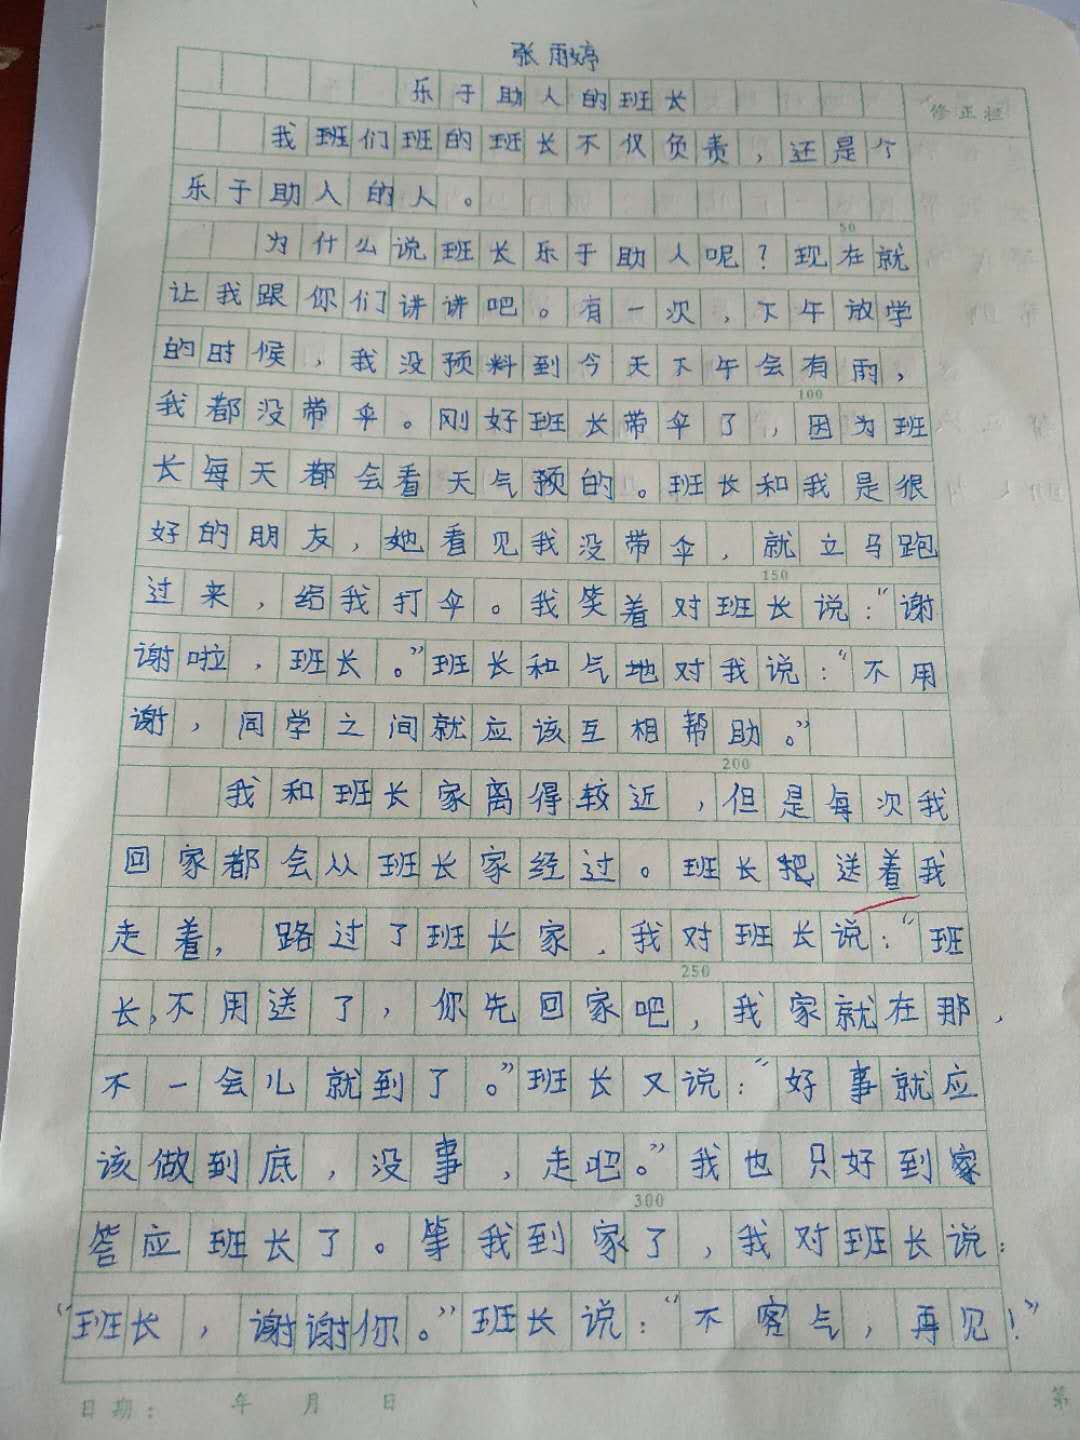 张雨婷
乐于助人的班长
修正栏
我班们班的班长不仅负责，还是个
乐于助人的人。
50
为什么说班长乐于助人呢？现在就
让我跟你们讲讲吧。有一次，下午放学
的时候，我没预料到今天下午会有雨，
100
我都没带伞。刚好班长带伞了，因为班
长每天都会看天气预的。班长和我是很
好的朋友，她看见我没带伞，就立马跑
150
过来，给我打伞。我笑着对班长说：“谢
谢啦，班长。”班长和气地对我说：“不用
谢，同学之间就应该互相帮助。”
200
我和班长家离得较近，但是每次我
回家都会从班长家经过。班长把送着我
走着，路过了班长家，我对班长说：“班
250
长，不用送了，你先回家吧，我家就在那，
不一会儿就到了。”班长又说：“好事就应
该做到底，没事，走吧。”我也只好到家
300
答应班长了。等我到家了，我对班长说：
“班长，谢谢你。”班长说：“不客气，再见！”
日期： 年 月 日
第